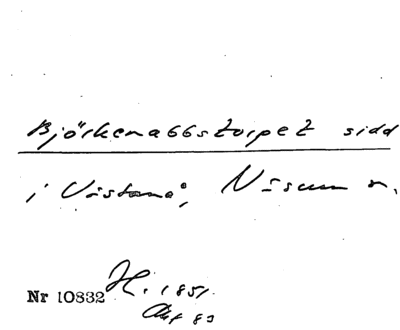 Björkenabbstorpet sidd
i Västanå, Näsum n.
Nr 10832 H. 1851.
83